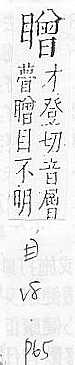 䁬
才登切音層
瞢䁬目不明
目 V8 . P65